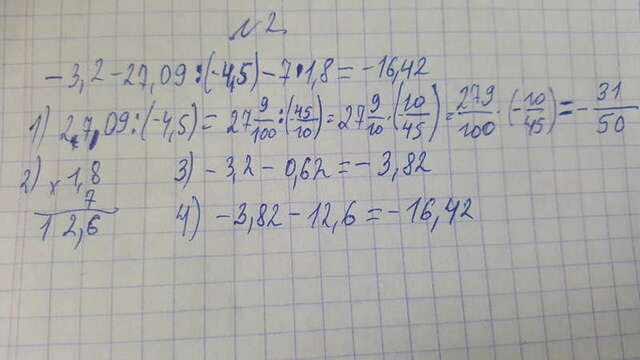 N 2
-3,2-27,09:(-4,5)-7·1,8=-16,42
1) 27,09:(-4,5)=27 9/100:(-45/10)=27 9/10·(10/45)=279/100·(-10/45)=-31/50
2) ×1,8
7
12,6
3) -3,2-0,62=-3,82
4) -3,82-12,6=-16,42